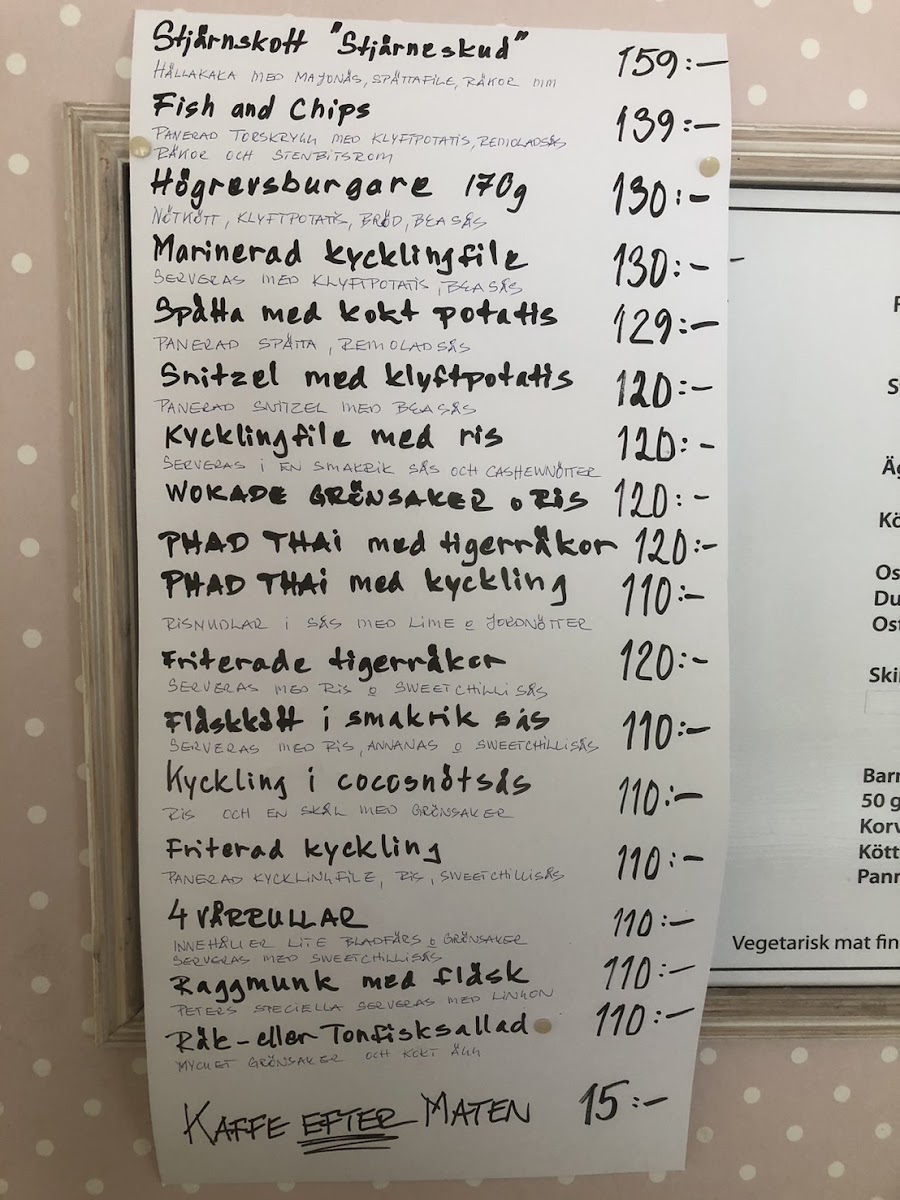 Stjärnskott "Stjärneskud" 159:-
HÄLLAKAKA MED MAJONÄS, SPÄTTAFILE, RÄKOR MM
Fish and Chips 139:-
PANERAD TORSKRYGG MED KLYFTPOTATIS, REMOLADSÅS
RÄKOR OCH STENBITSROM
Högrevsburgare 170g 130:-
NÖTKÖTT, KLYFTPOTATIS, BRÖD, BEASÅS
Marinerad kycklingfile 130:-
SERVERAS MED KLYFTPOTATIS, BEASÅS
Spätta med kokt potatis 129:-
PANERAD SPÄTTA, REMOLADSÅS
Snitzel med klyftpotatis 120:-
PANERAD SNITZEL MED BEASÅS
Kycklingfile med ris 120:-
SERVERAS i EN SMAKRIK SÅS OCH CASHEWNÖTTER
WOKADE GRÖNSAKER o Ris 120:-
PHAD THAi med tigerräkor 120:-
PHAD THAi med kyckling 110:-
RISNUDLAR i SÅS MED LIME o JORDNÖTTER
Friterade tigerräkor 120:-
SERVERAS MED RIS o SWEETCHILLISÅS
Fläskkött i smakrik sås 110:-
SERVERAS MED RIS, ANNANAS o SWEETCHILLISÅS
Kyckling i cocosnötsås 110:-
RIS OCH EN SKÅL MED GRÖNSAKER
Friterad kyckling 110:-
PANERAD KYCKLINGFILE, RIS, SWEETCHILLISÅS
4 VÅRRULLAR 110:-
INNEHÅLLER LITE BLADFÄRS o GRÖNSAKER
SERVERAS MED SWEETCHILLISÅS
Raggmunk med fläsk 110:-
PETERS SPECIELLA SERVERAS MED LINGON
Räk- eller Tonfisksallad 110:-
MYCKET GRÖNSAKER OCH KOKT ÄGG
KAFFE EFTER MATEN 15:-
Äg
Kö
Os
Du
Ost
Skin
Barn
50 g
Korv
Kött
Pann
Vegetarisk mat fin